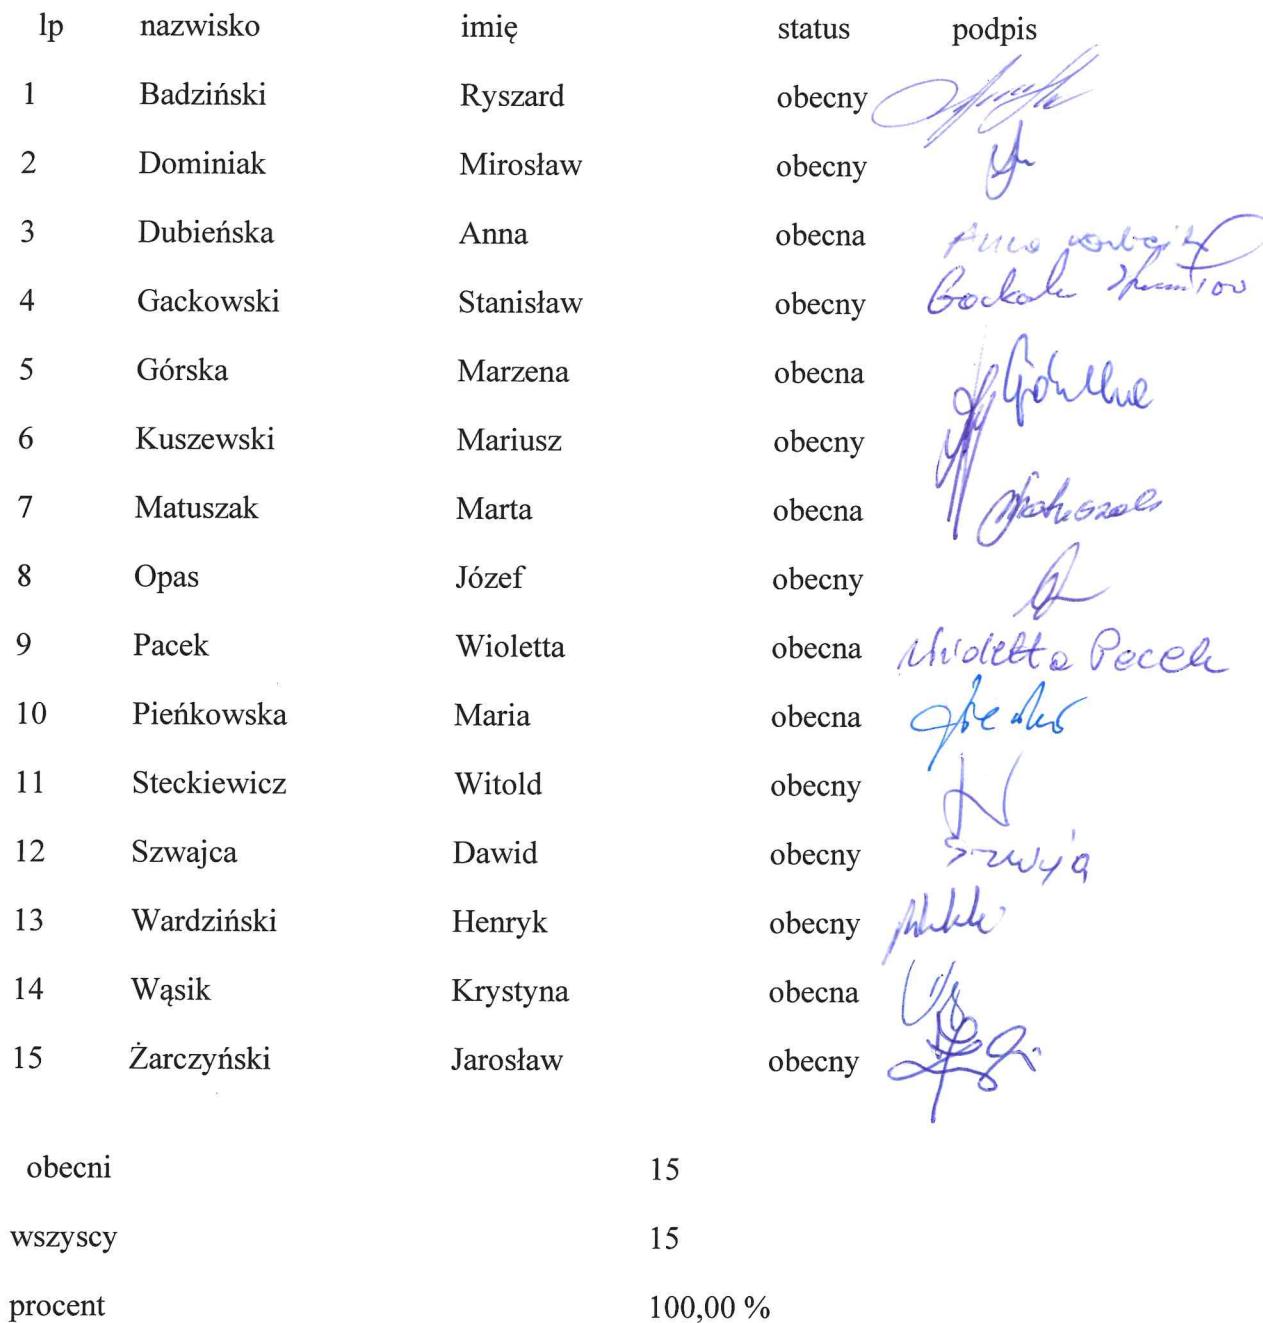 lp nazwisko imię status podpis
1 Badziński Ryszard obecny
2 Dominiak Mirosław obecny
3 Dubieńska Anna obecna
4 Gackowski Stanisław obecny
5 Górska Marzena obecna
6 Kuszewski Mariusz obecny
7 Matuszak Marta obecna
8 Opas Józef obecny
9 Pacek Wioletta obecna Wioletta Pacek
10 Pieńkowska Maria obecna
11 Steckiewicz Witold obecny
12 Szwajca Dawid obecny
13 Wardziński Henryk obecny
14 Wąsik Krystyna obecna
15 Żarczyński Jarosław obecny
obecni 15
wszyscy 15
procent 100,00 %